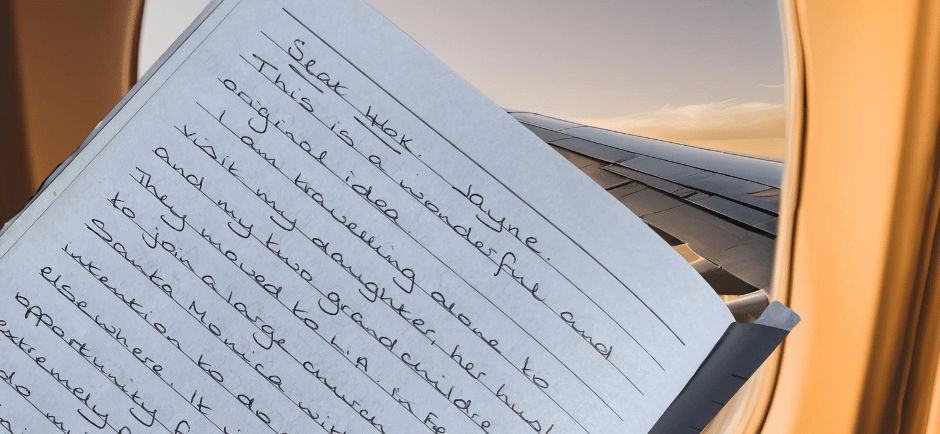 Seat 44K. Jayne.
This is a wonderful and
original idea.
I am travelling alone to
visit my daughter, her husb
and my two grandchildre
They moved to L.A. in Fe
to join a large church
Santa Monica with
intention to do
elsewhere. It
opportunity f
extremely
do m